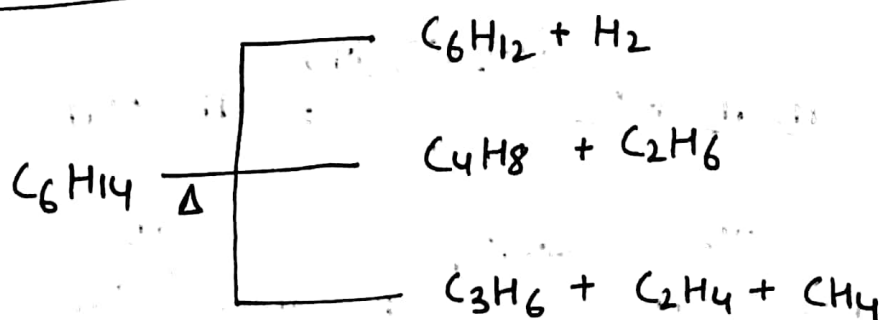 C6H12 + H2
C6H14 Δ C4H8 + C2H6
C3H6 + C2H4 + CH4